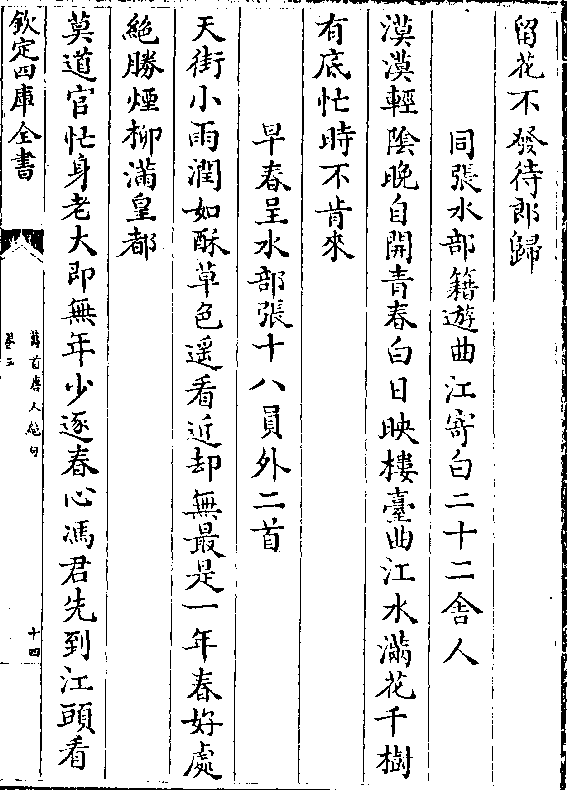 留花不發待郎歸
同張水部籍遊曲江寄白二十二舎人
漠漠輕陰晚自開青春白日映樓臺曲江水滿花千樹
有底忙時不肯來
早春呈水部張十八員外二首
天街小雨潤如酥草色遥看近却無最是一年春好處
絶勝煙柳滿皇都
莫道官忙身老大即無年少逐春心馮君先到江頭看
欽定四庫全書
萬首唐人絶句
卷三
十四